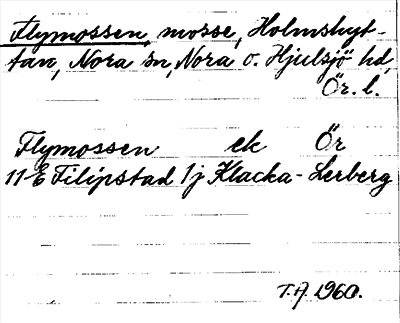 Flymossen, mosse, Holmshyt-
tan, Nora sn, Nora o. Hjulsjö hd,
Ör. l.
Flymossen ek Ör
11-E Filipstad 1j Klacka-Lerberg
T.A. 1960.